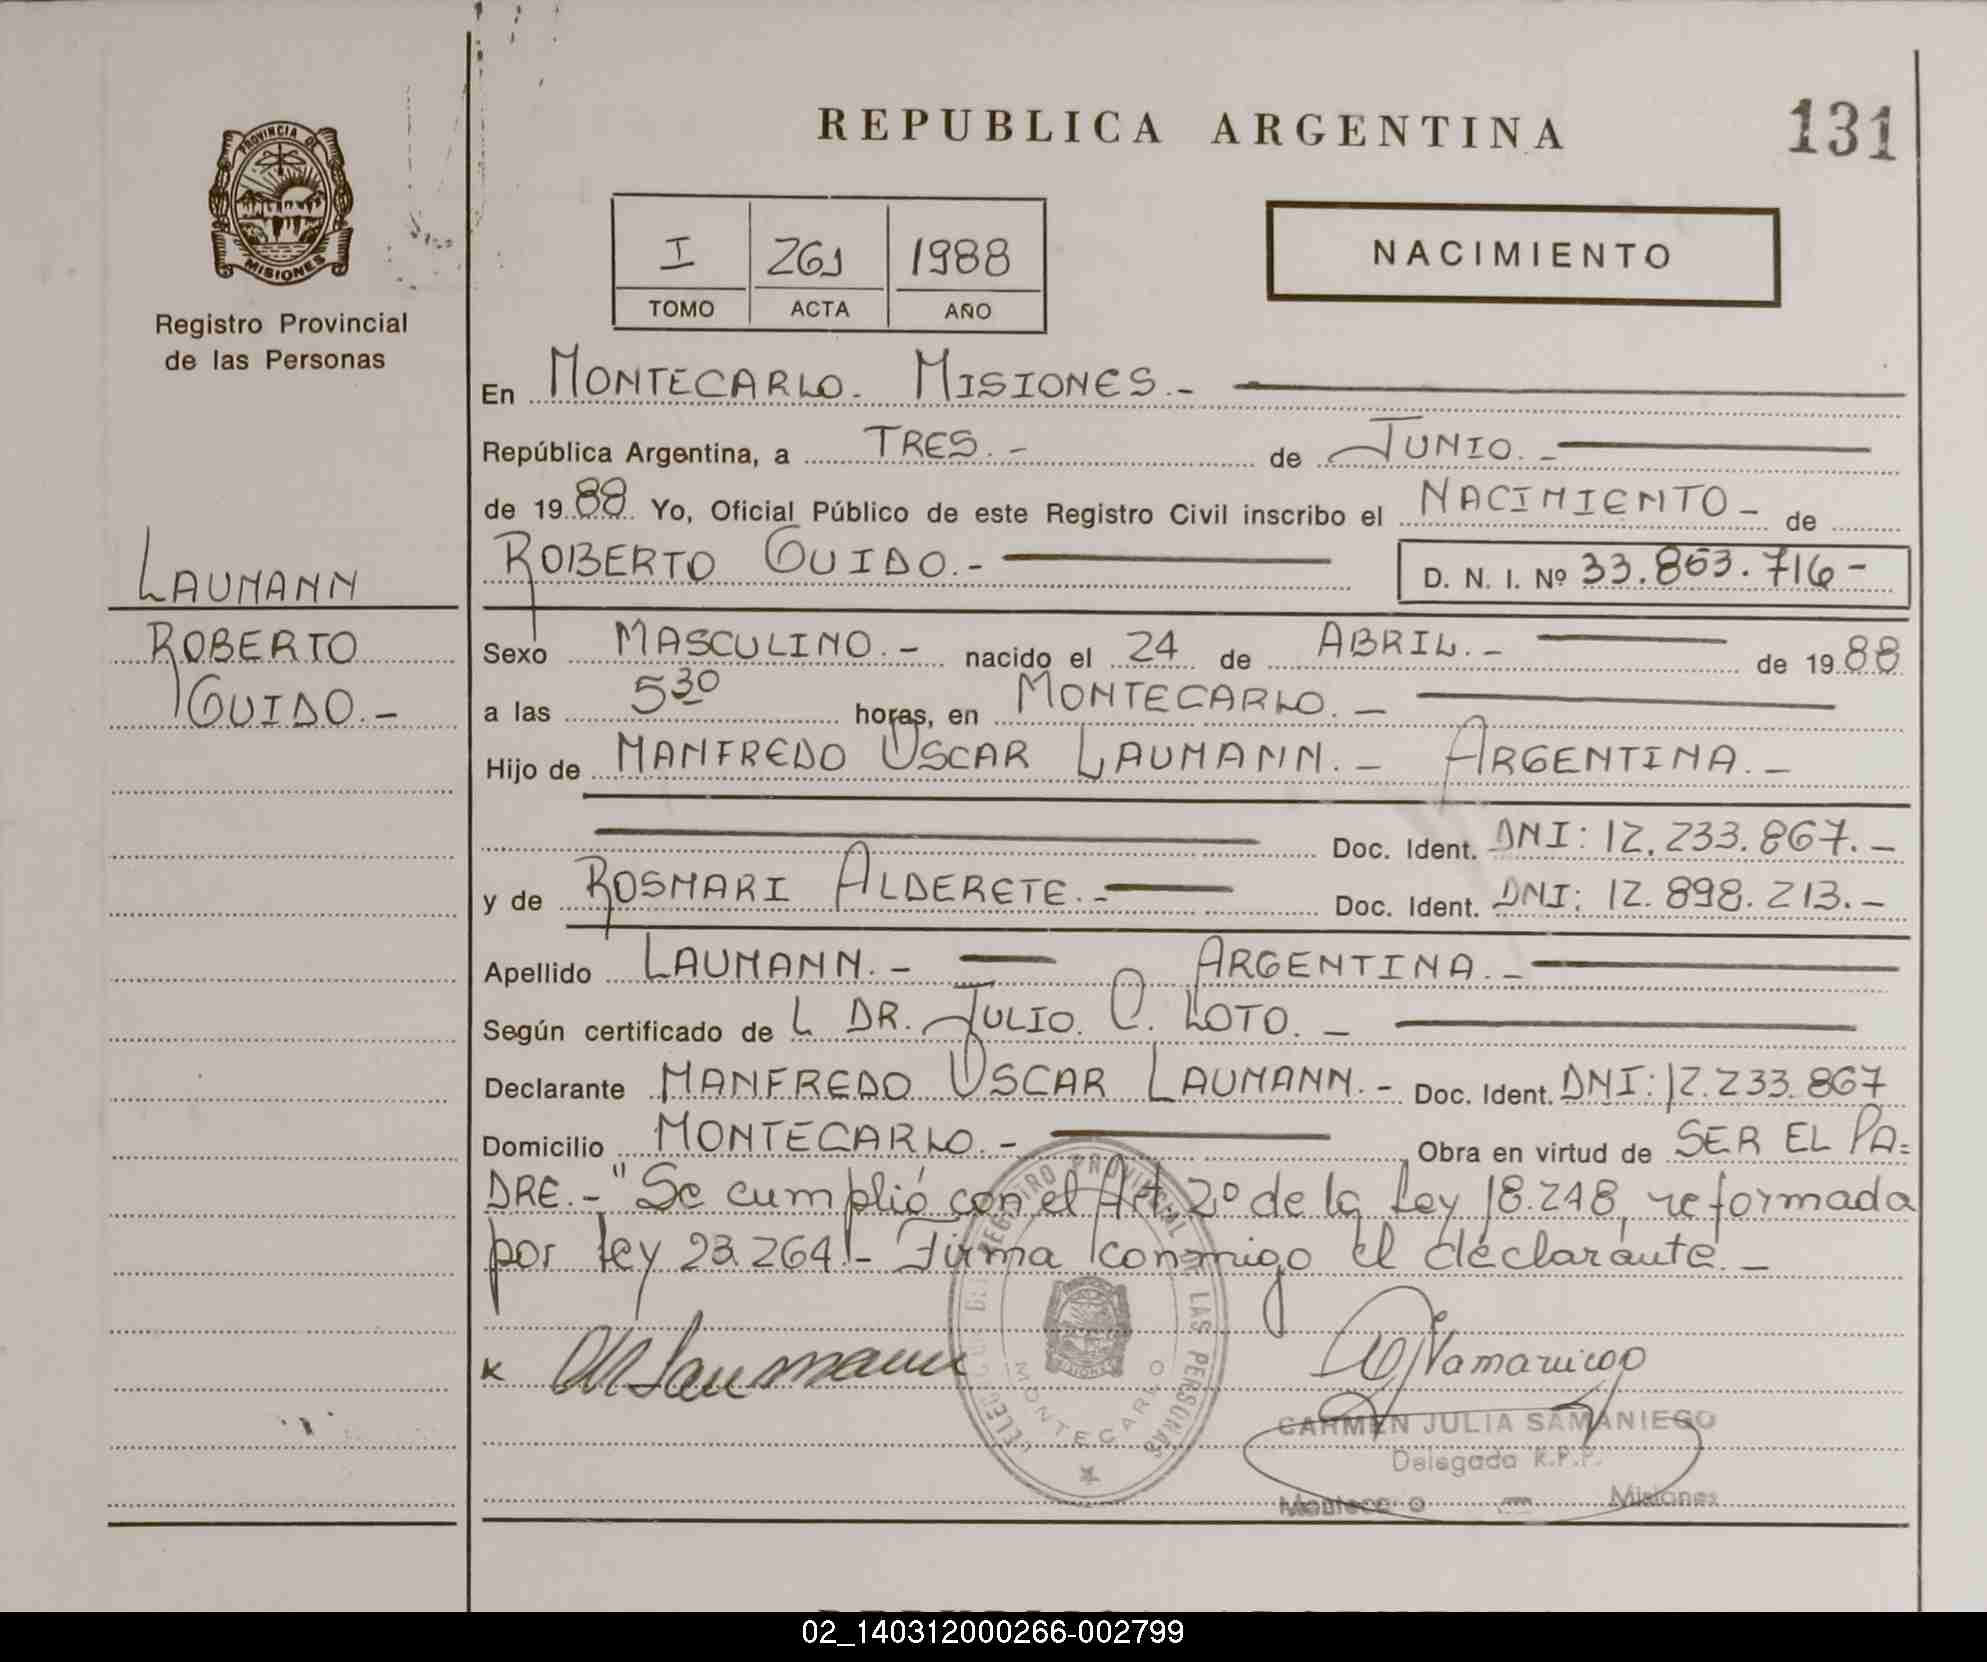 REPUBLICA ARGENTINA
131
PROVINCIA DE
MISIONES
Registro Provincial
de las Personas
I 261 1988
TOMO ACTA AÑO
NACIMIENTO
En MONTECARLO. MISIONES.-
República Argentina, a TRES.- de JUNIO.-
de 1988 Yo, Oficial Público de este Registro Civil inscribo el NACIMIENTO- de
ROBERTO GUIDO.- D. N. I. Nº 33.863.716-
LAUMANN
ROBERTO
GUIDO.-
Sexo MASCULINO.- nacido el 24 de ABRIL.- de 1988
a las 5 30 horas, en MONTECARLO.-
Hijo de MANFREDO OSCAR LAUMANN.- ARGENTINA.-
Doc. Ident. DNI: 12.233.867.-
y de ROSMARI ALDERETE.- Doc. Ident. DNI: 12.898.213.-
Apellido LAUMANN.- ARGENTINA.-
Según certificado de L DR. JULIO. C. LOTO.-
Declarante MANFREDO OSCAR LAUMANN.- Doc. Ident. DNI: 12.233.867
Domicilio MONTECARLO.- Obra en virtud de SER EL PA=
DRE.- "Se cumplió con el Art. 2º de la Ley 18.248, reformada
por ley 23.264!- Firma conmigo el declarante.-
REGISTRO PROVINCIAL DE LAS PERSONAS
MONTECARLO
Laumann
CARMEN JULIA SAMANIEGO
Delegada R.P.P.
Misiones
02_140312000266-002799